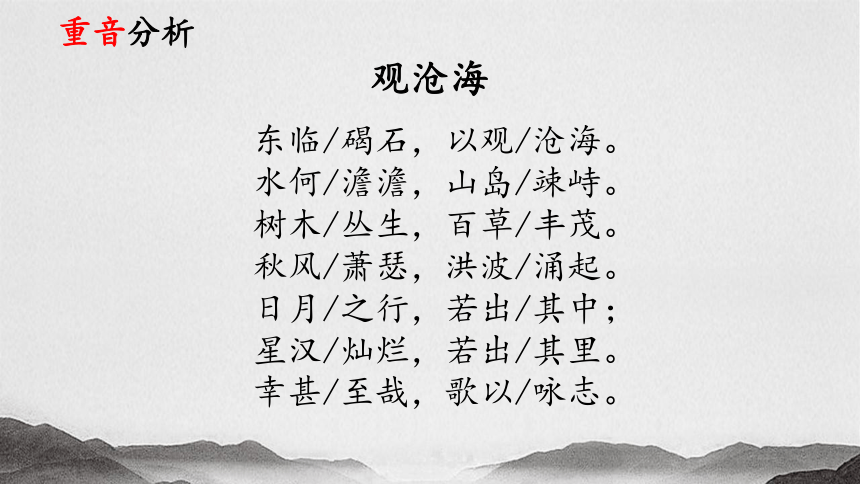 重音分析
观沧海
东临/碣石，以观/沧海。
水何/澹澹，山岛/竦峙。
树木/丛生，百草/丰茂。
秋风/萧瑟，洪波/涌起。
日月/之行，若出/其中；
星汉/灿烂，若出/其里。
幸甚/至哉，歌以/咏志。